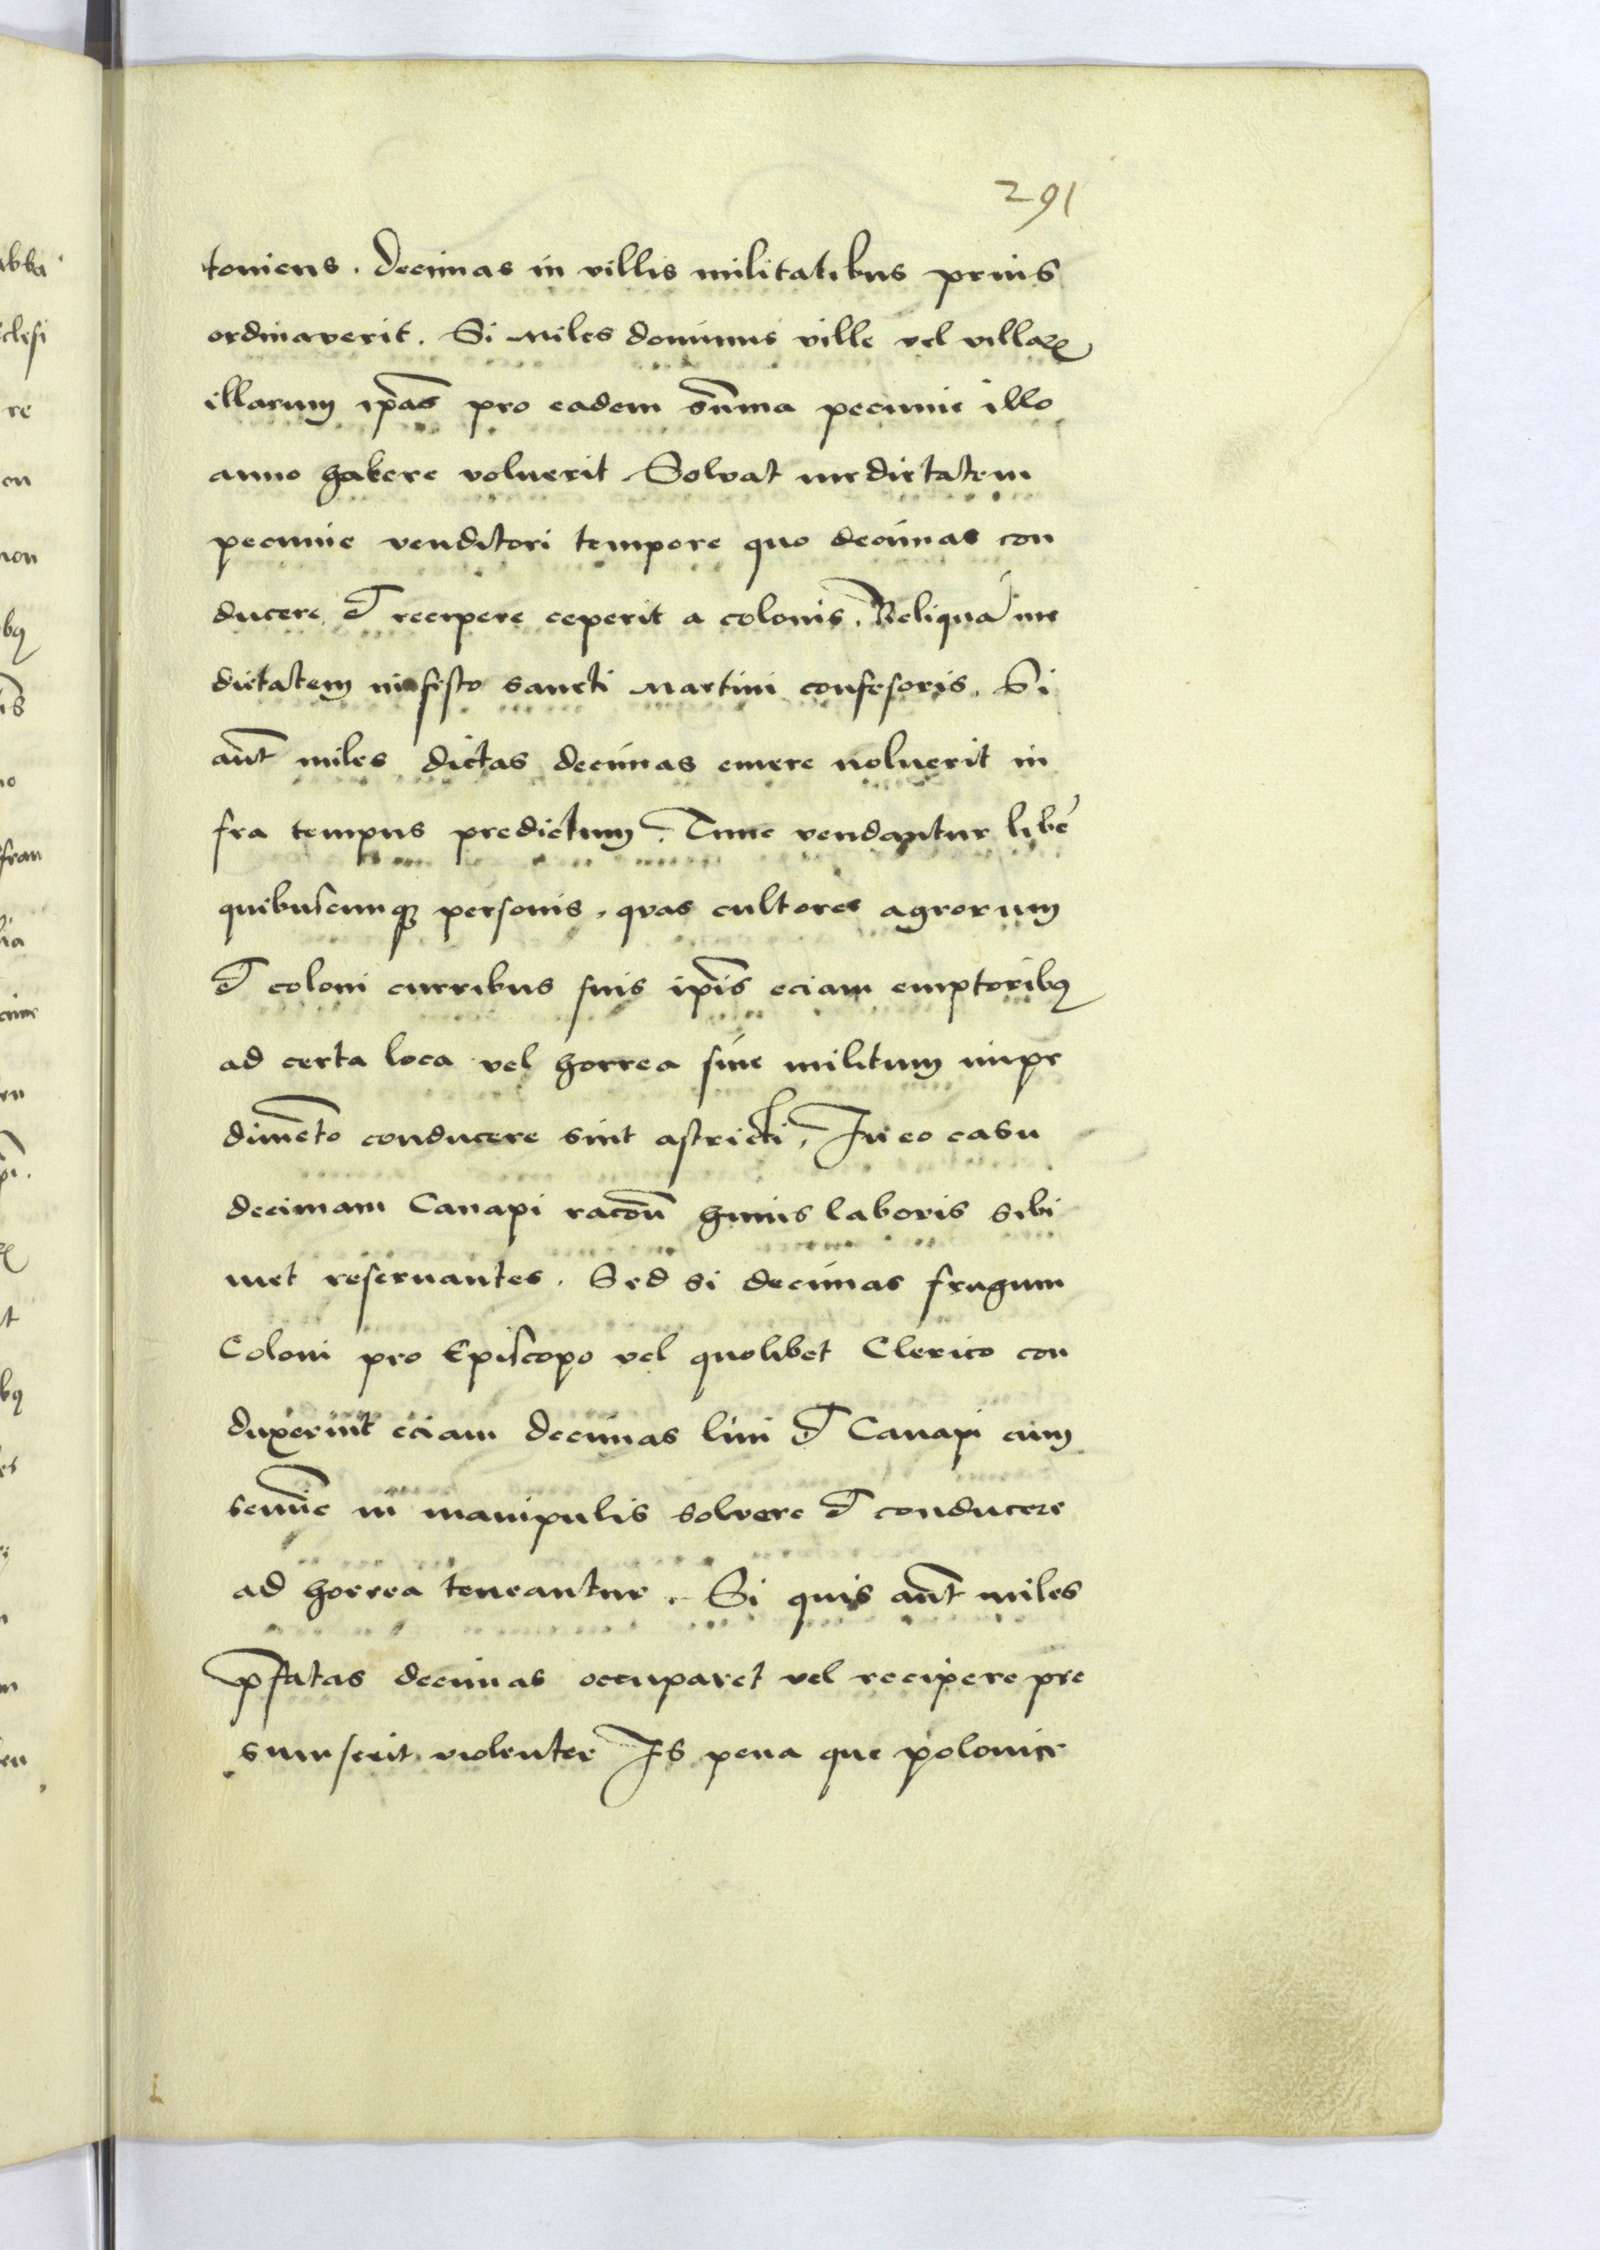 291
toniens. Decimas in villis militatibus prius
ordinaverit. Si Miles dominus ville vel villaꝝ
illarum ip̄as pro eadem sūma pecunie illo
anno habere voluerit. Solvat medietatem
pecunie venditori tempore quo decimas con
ducere et recipere ceperit a colonis. Reliquā me
dietatem in festo sancti Martini confesoris. Si
aūt miles dictas decimas emere noluerit in
fra tempus predictum. Tunc vendantur libē
quibuscunqꝫ personis. quas cultores agrorum
et coloni curribus suis ip̄is eciam emptoribꝰ
ad certa loca vel horrea sine militum impe
dimēto conducere sint astricti, In eo casu
decimam Canapi racōn̄ huius laboris sibi
met reseruantes. Sed si decimas frugum
Coloni pro Episcopo vel quolibet Clerico con
duxerint eciam decimas lini et Canapi cum
semīe in manipulis solvere et conducere
ad horrea teneantur. Si quis aūt miles
p̄fatas decimas occuparet vel recipere pre
sumserit violenter Is pena que polonice